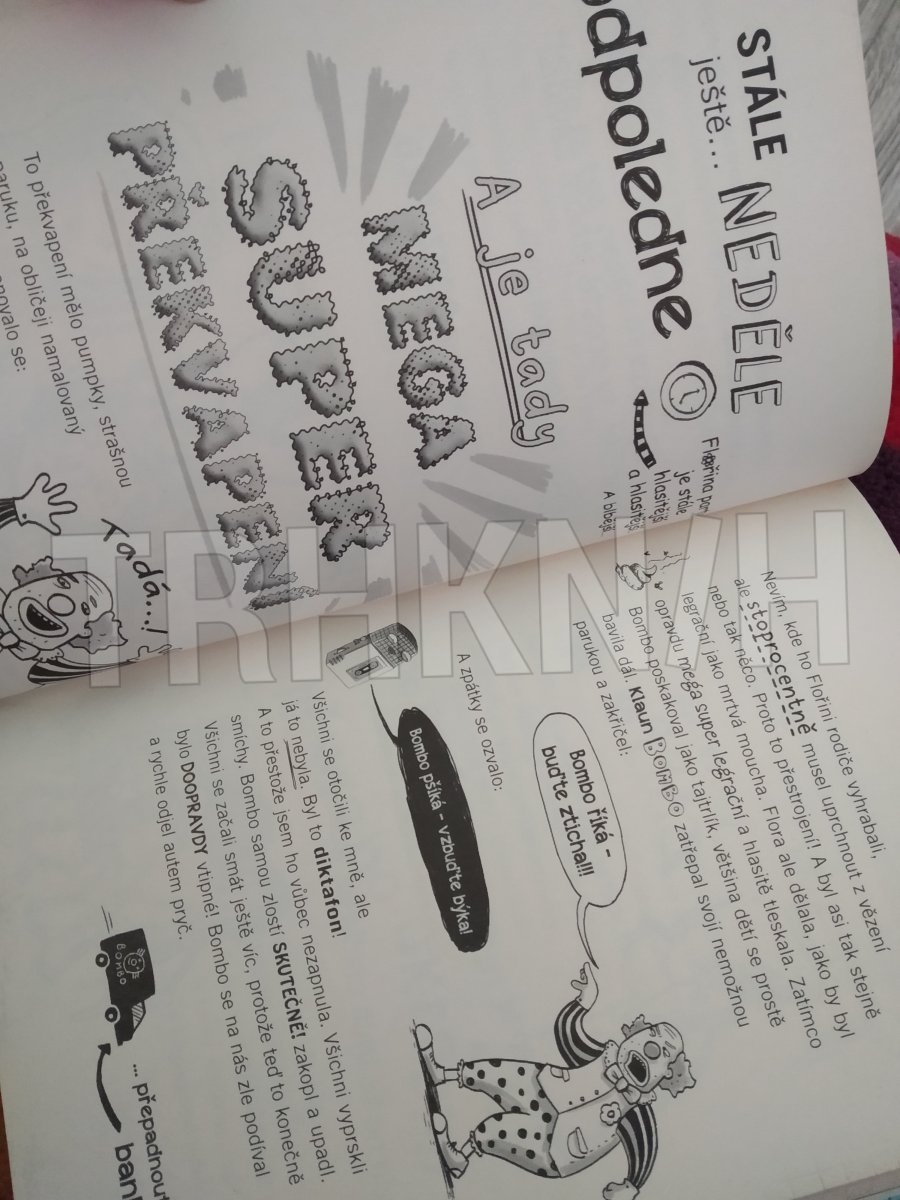 STÁLE NEDĚLE
ještě...
odpoledne
Flořina pan
je stále
hlasitější
a hlasitější
A blbější
A je tady
MEGA
SUPER
PŘEKVAPENÍ
To překvapení mělo pumpky, strašnou
paruku, na obličeji namalovaný
Tadá...!
Nevím, kde ho Flořini rodiče vyhrabali,
ale stoprocentně musel uprchnout z vězení
nebo tak něco. Proto to přestrojení! A byl asi tak stejně
legrační jako mrtvá moucha. Flora ale dělala, jako by byl
opravdu mega super legrační a hlasitě tleskala. Zatímco
Bombo poskakoval jako tajtrlík, většina dětí se prostě
bavila dál. Klaun BOMBO zatřepal svojí nemožnou
parukou a zakřičel:
Bombo říká –
buďte zticha!!!
A zpátky se ozvalo:
Bombo pšíká – vzbuďte býka!
Všichni se otočili ke mně, ale
já to nebyla. Byl to diktafon!
A to přestože jsem ho vůbec nezapnula. Všichni vyprskli
smíchy. Bombo samou zlostí SKUTEČNĚ! zakopl a upadl.
Všichni se začali smát ještě víc, protože teď to konečně
bylo DOOPRAVDY vtipné! Bombo se na nás zle podíval
a rychle odjel autem pryč.
BOMBO
... přepadnout
ban
TRHKNIH